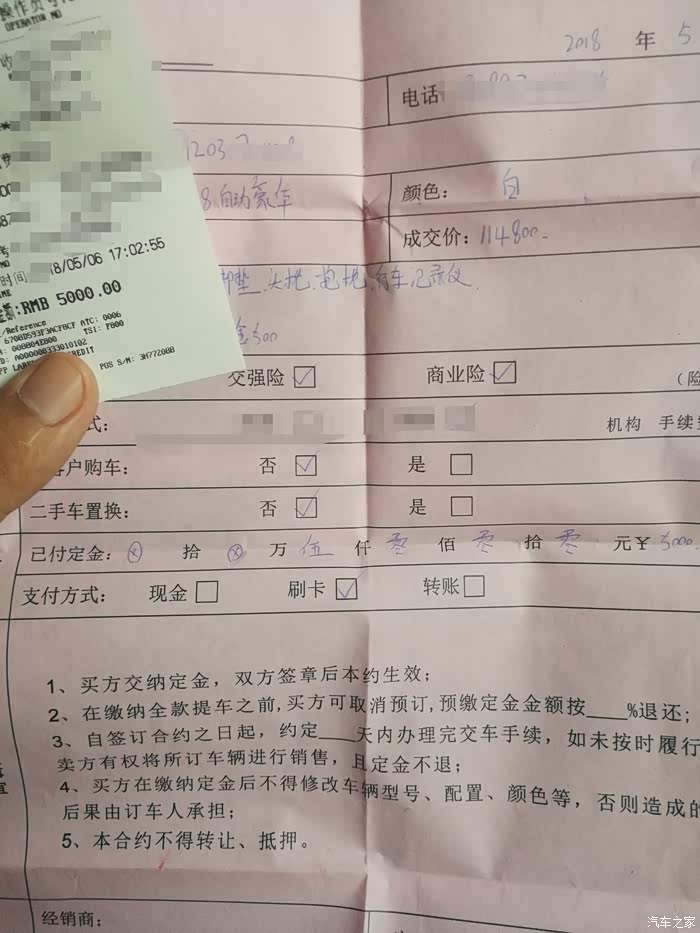 操作员号
OPERATOR NO
2018 年 5
电话
203
8.自动豪华
颜色： 白
成交价：114800.
脚垫、头枕、抱枕、行车记录仪
金500
时间 18/05/06 17:02:55
:RMB 5000.00
/Reference
6708D593F3ACFBCF ATC: 0006
TSI: F800
A000000333010102
POS S/N: 3H772088
交强险 商业险
机构 手续
客户购车： 否 是
二手车置换： 否 是
已付定金： ⊗ 拾 ⊗ 万 伍 仟 零 佰 零 拾 零 元￥5000
支付方式： 现金 刷卡 转账
1、买方交纳定金，双方签章后本约生效；
2、在缴纳全款提车之前，买方可取消预订，预缴定金金额按____%退还；
3、自签订合约之日起，约定____天内办理完交车手续，如未按时履行
卖方有权将所订车辆进行销售，且定金不退；
4、买方在缴纳定金后不得修改车辆型号、配置、颜色等，否则造成的
后果由订车人承担；
5、本合约不得转让、抵押。
经销商：
汽车之家